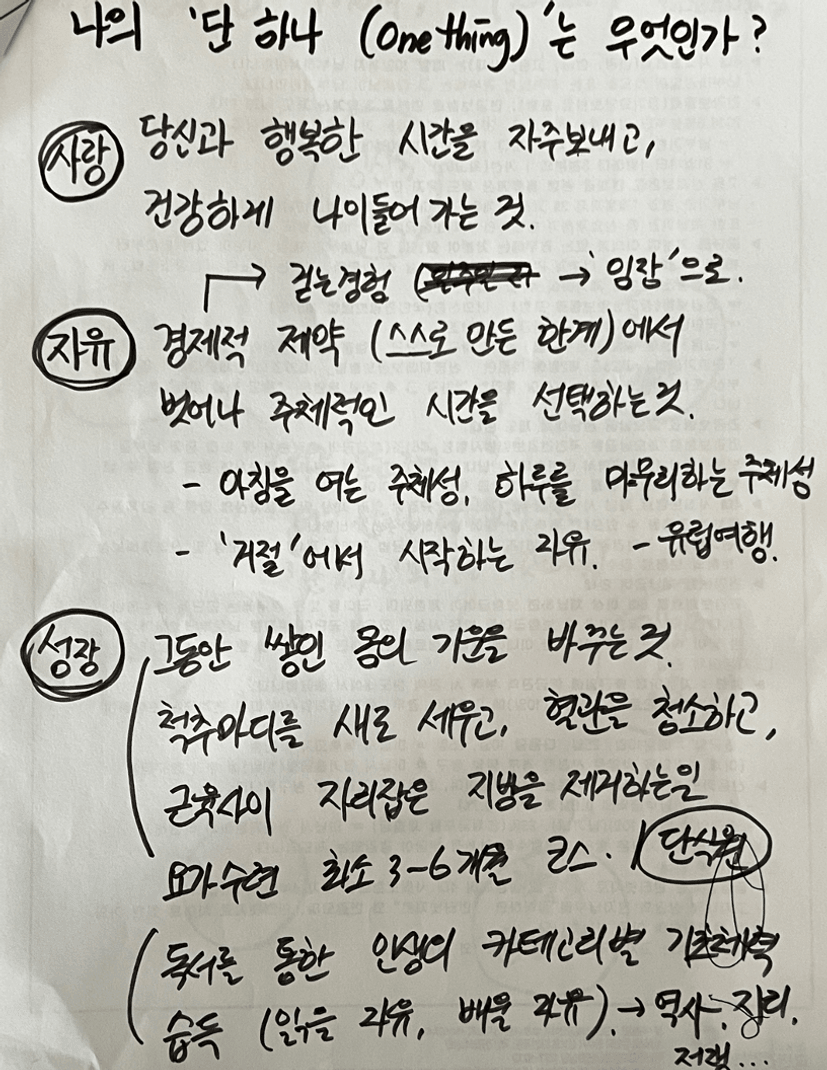 나의 '단 하나 (One thing)'는 무엇인가?
사랑 당신과 행복한 시간을 자주보내고,
건강하게 나이들어 가는 것.
→ 걷는경험 ( → '임장'으로.
자유 경제적 제약 (스스로 만든 한계)에서
벗어나 주체적인 시간을 선택하는 것.
- 아침을 여는 주체성, 하루를 마무리하는 주체성
- '거절'에서 시작하는 자유. - 유럽여행.
성장 그동안 쌓인 몸의 기운을 바꾸는 것.
척추마디를 새로 세우고, 혈관을 청소하고,
근육사이 자리잡은 지방을 제거하는일
요가수련 최소 3-6개월 코스. / 단식원
독서를 통한 인생의 카테고리별 기초체력
습득 (읽을 자유, 배울 자유). → 역사, 지리,